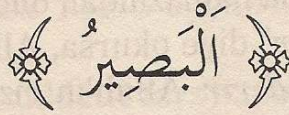 اَلْبَصِيرُ